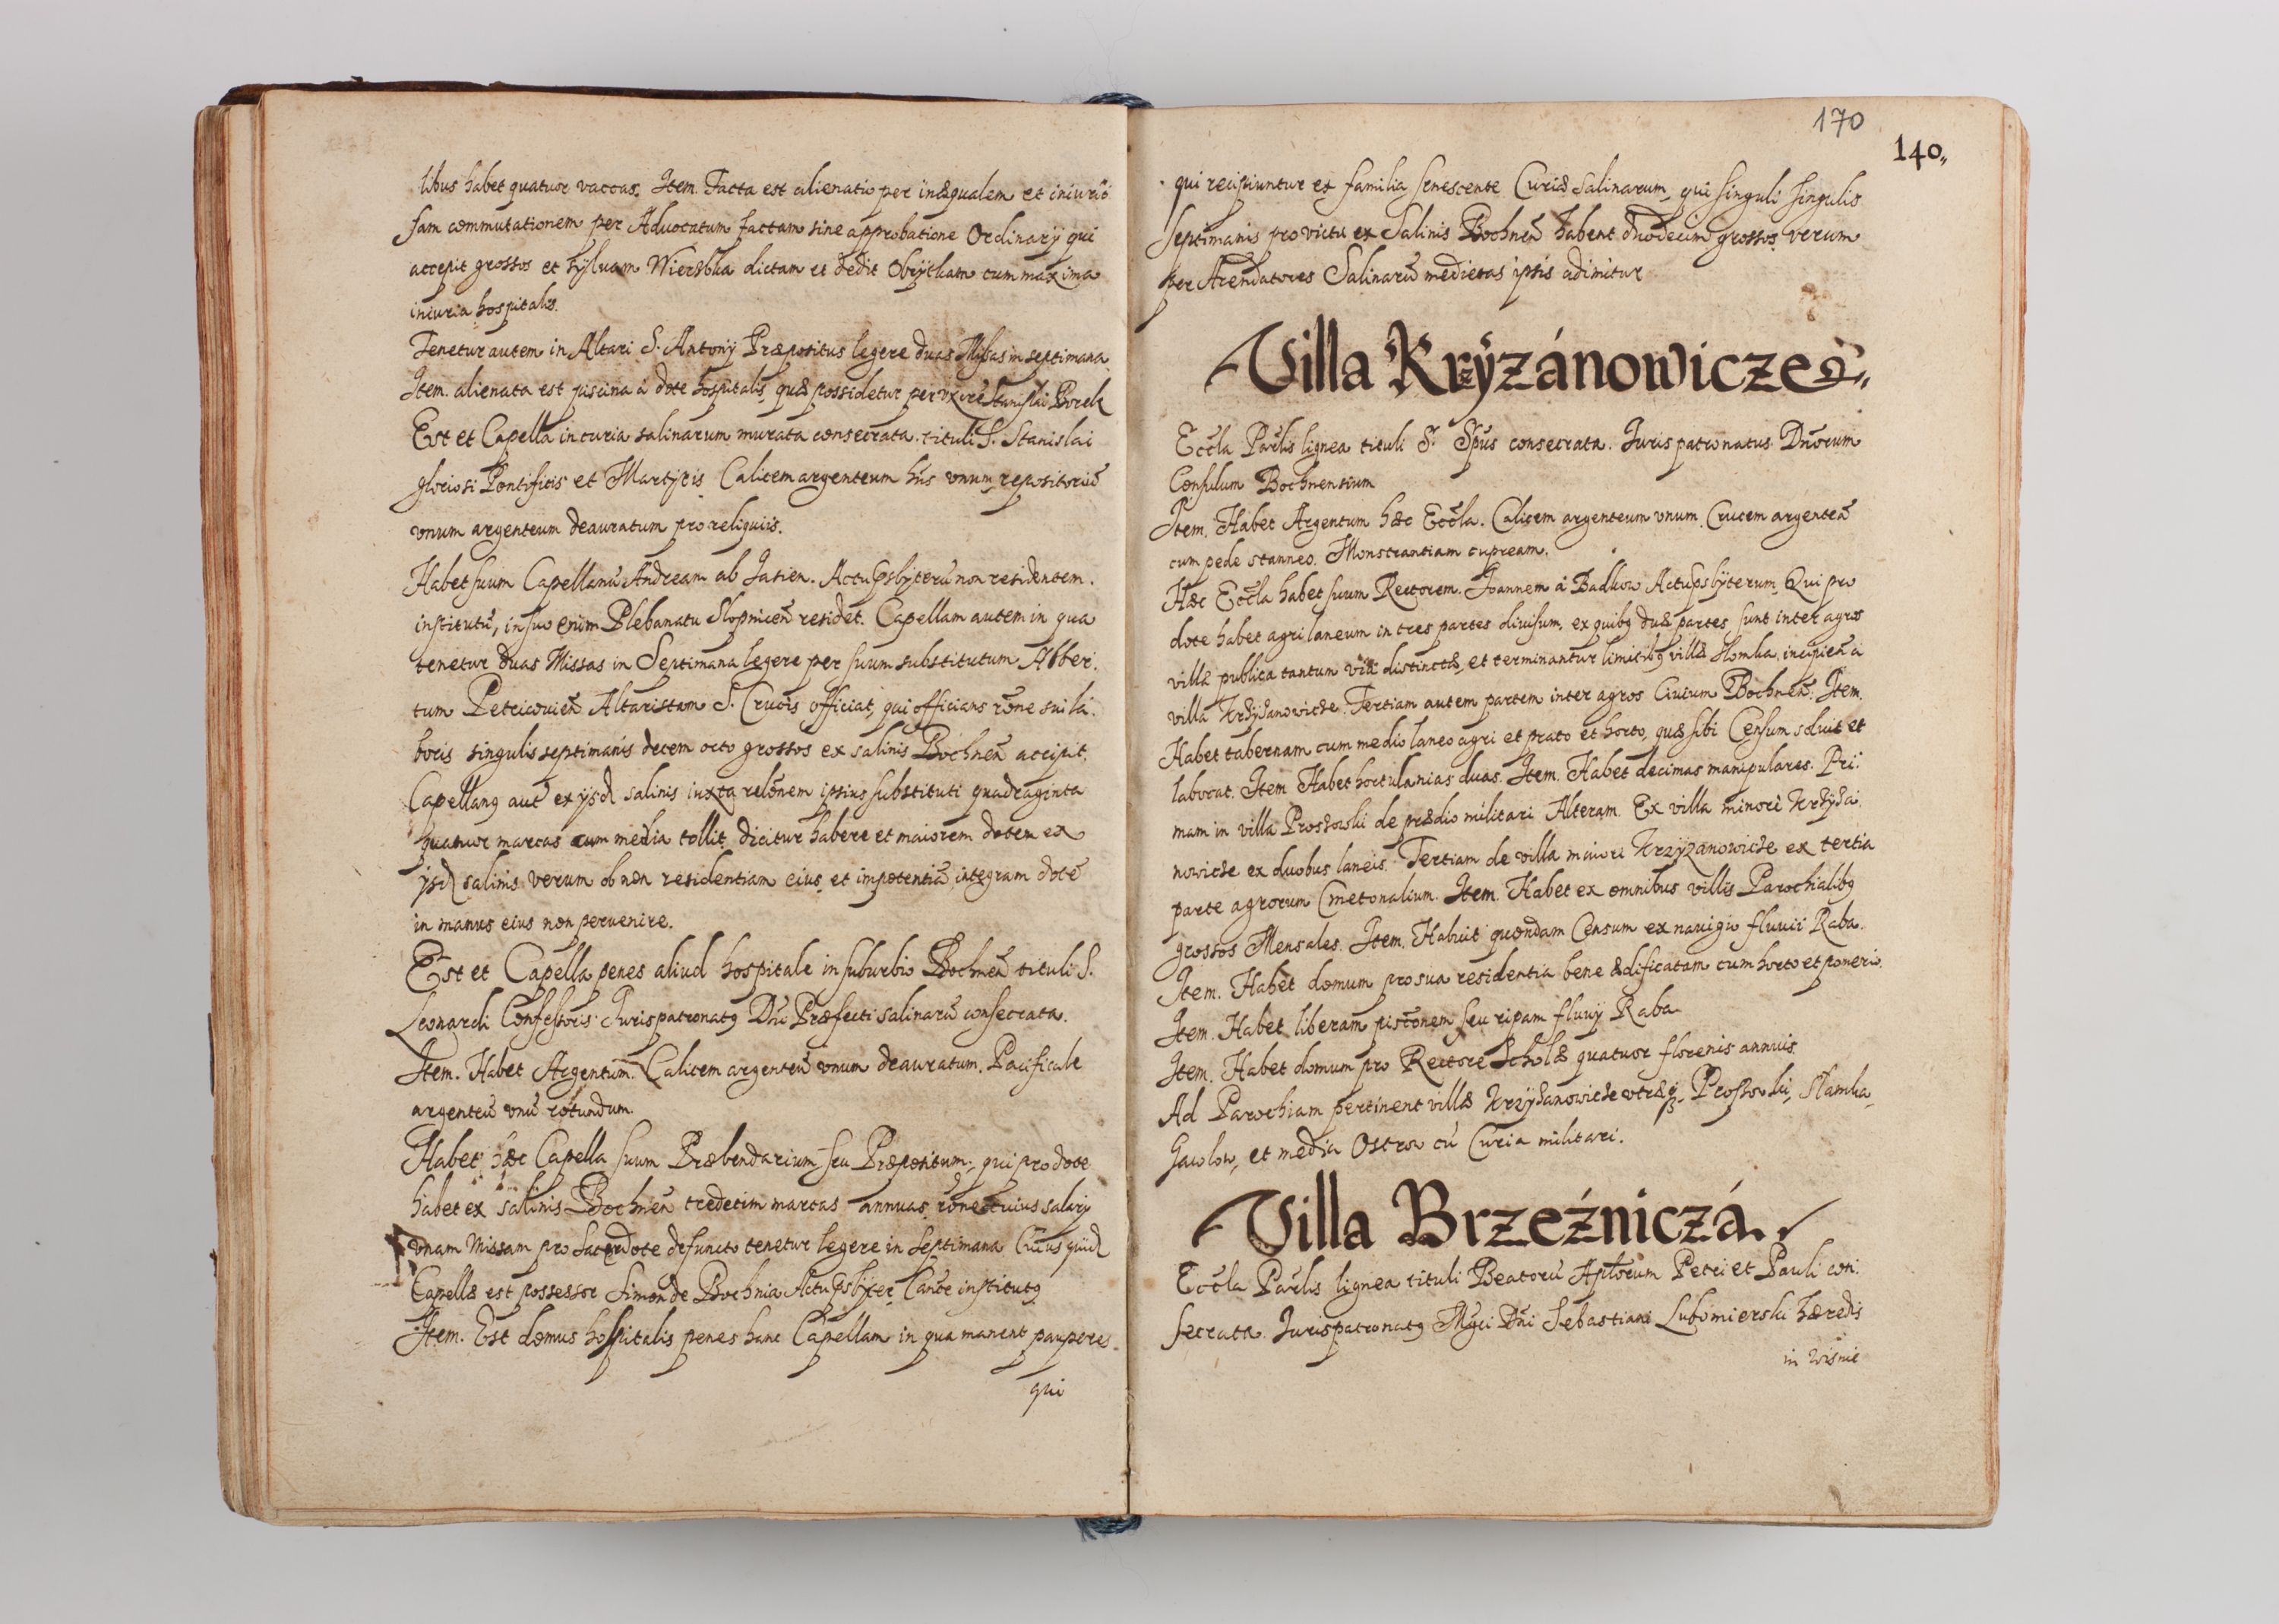 libus habet quatuor vaccas. Item. Facta est alienatio per inæqualem et iniurio
sam commutationem per Aduocatum factam sine approbatione Ordinarij qui
accepit grossos et syluam Wierzbka dictam et dedit Obrytkam cum maxima
iniuria hospitalis.
Tenetur autem in Altari S. Antonij Præpositus legere duas Missas in septimana.
Item. alienata est piscina á dote hospitalis, quæ possidetur per vxorē Stanislai Borek
Est et Capella in curia salinarum murata consecrata. tituli S. Stanislai
gloriosi Pontificis et Martyris Calicem argenteum hns vnum repositoriū
vnum argenteum deauratum pro reliquijs.
Habet suum Capellanū Andream ab Jasien. Actu Psbyterū non residentem.
institutū, in suo enim Plebanatu Slopnicēn residet. Capellam autem in qua
tenetur duas Missas in Septimana legere per suum substitutum Alber:
tum Petricouien̄ Altaristam S. Crucis officiat, qui officians rōne sui la:
boris singulis septimanis decem octo grossos ex salinis Bochnen̄ accipit.
Capellanꝗ aut̄ ex ijsd salinis iuxta relōnem ipsius substituti quadraginta
quatuor marcas cum media tollit. dicitur habere et maiorem dotem ex
ijsd salinis verum ob non residentiam eius, et impotentiā integram dotē
in manus eius non peruenire.
Est et Capella penes aliud hospitale in suburbio Bochnen̄ tituli S.
Leonardi Confessoris. Juris patronatꝗ Dni Præfecti salinarū consecrata.
Item. Habet Argentum. Calicem argenteū vnum deauratum. Pacificale
argenteū vnū rotundum.
Habet hæc Capella suum Præbendarium seu Præpositum, qui pro dote
habet ex salinis Bochnen̄ tredecim marcas annuas, rōne cuius salarij
vnam Missam pro Sacerdote defuncto tenetur legere in Septimana Cuius quid
Capellæ est possessor Simon de Bochnia Actu Psbyter Canōe institutꝗ
Item. Est domus hospitalis penes hanc Capellam in qua manent pauperes.
qui
170
140.
qui recipiuntur ex familia senescente Curiæ Salinarum, qui singuli singulis
septimanis pro victu ex Salinis Bochnen̄ habent duodecim grossos, verum
per Arendatores Salinarū medietas ipsis adimitur
Villa Krzÿzánowicze
Eccl̄a Par̄lis lignea tituli S. Sp̄us consecrata. Juris patronatus Dnorum
Consulum Bochnensium
Item. Habet Argentum hæc Eccl̄a. Calicem argenteum vnum. Crucem argenteā
cum pede stanneo. Monstrantiam cupream.
Hæc Eccl̄a habet suum Rectorem. Joannem á Badkow Actu Psbyterum, Qui pro
dote habet agri laneum in tres partes diuisum, ex quibꝗ duæ partes sunt inter agros
villæ publica tantum via distinctæ, et terminantur limitibꝗ villæ Slomka, incipien̄ a
villa Krzyzanowicze. Tertiam autem partem inter agros Ciuium Bochnen̄. Item.
Habet tabernam cum medio laneo agri et prato et horto, quæ sibi Censum soluit et
laborat. Item. Habet hortulanias duas. Item. Habet decimas manipulares. Pri:
mam in villa Proszowki de prædio militari Alteram. Ex villa minori Krzyza:
nowicze ex duobus laneis. Tertiam de villa maiori Krzyzanowicze ex tertia
parte agrorum Cmetonalium. Item. Habet ex omnibus villis Parochialibꝗ
grossos Mensales. Item. Habuit quondam Censum ex nauigio fluuii Raba.
Item. Habet domum pro sua residentia bene ædificatam cum horto et pomerio.
Item. Habet liberam pisc̄onem seu ripam fluuij Raba.
Item. Habet domum pro Rectore Scholæ quatuor florenis annuis.
Ad Parochiam pertinent villæ Krzyzanowicze vtræqꝫ, Proszowki, Slamka,
Gawlow, et media Ostrow cū Curia militari.
Villa Brzeźniczá
Eccl̄a Par̄lis lignea tituli Beatorū Apl̄orum Petri et Pauli con:
secrata. Juris patronatꝗ Mgci Dni Sebastiani Lubomierski hæredis
in Wisnic